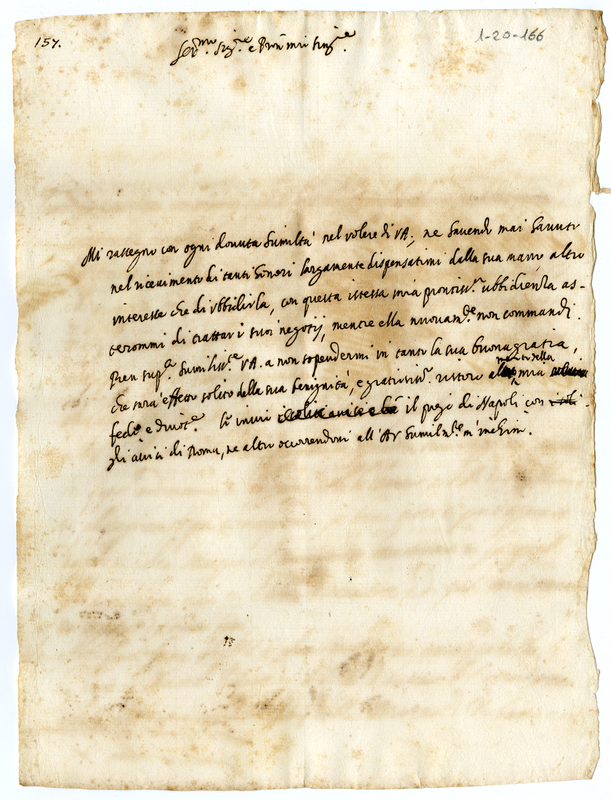 157.
1-20-166
Ser.mo Sig.re e Pron mio sing.re
Mi rassegno con ogni dovuta humiltà nel volere di VA, ne havendo mai havuto
nel ricevimento di tanti honori largamente dispensatimi dalla sua mano, altro
interesse che di ubbidirla, con questa istessa mia prontiss.a ubbidienza as-
terommi di trattar i suoi negotij, mentre ella nuovam.te non commandi.
Ben sup.co humiliss.te VA. a non sospendermi in tanto la sua buona gratia,
che sarà effetto solito della sua benignità, e gratitiss.o ristoro alla mia
fede e divot.e Le invio il piego di Napoli con
gli avisi di Roma, ne altro occorrendomi all'AV humilm.te m'inchino.